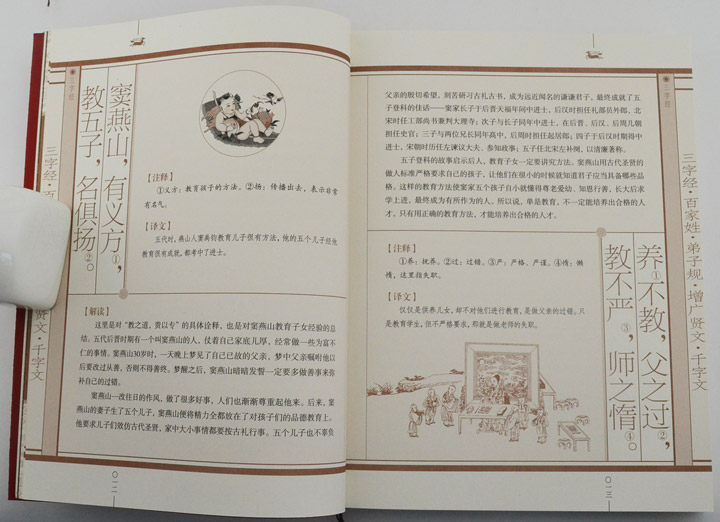 三字经
窦燕山，有义方①，
教五子，名俱扬②。
【注释】
①义方：教育孩子的方法。②扬：传播出去，表示非常
有名气。
【译文】
五代时，燕山人窦禹钧教育儿子很有方法，他的五个儿子经他
教育很有成就，都考中了进士。
【解读】
这里是对“教之道，贵以专”的具体诠释，也是对窦燕山教育子女经验的总
结。五代后晋时期有一个叫窦燕山的人，仗着自己家底儿厚，经常做一些为富不
仁的事情。窦燕山30岁时，一天晚上梦见了自己已故的父亲，梦中父亲嘱咐他以
后要改过从善，否则不得善终。梦醒之后，窦燕山暗暗发誓一定要多做善事来弥
补自己的过错。
窦燕山一改往日的作风，做了很多好事，人们也渐渐尊重起他来。后来，窦
燕山的妻子生了五个儿子，窦燕山便将精力全都放在了对孩子们的品德教育上。
他要求儿子们效仿古代圣贤，家中大小事情都要按古礼行事。五个儿子也不辜负
三字经·百
贤文·千字文
〇一二
父亲的殷切希望，刻苦研习古礼古书，成为远近闻名的谦谦君子，最终成就了五
子登科的佳话——窦家长子于后晋天福年间中进士，后汉时担任礼部员外郎，北
宋时任工部尚书兼判大理寺；次子与长子同年中进士，在后晋、后汉、后周几朝
担任史官；三子与两位兄长同年高中，后周时担任起居郎；四子于后汉时期得中
进士，宋朝时历任左谏议大夫、参知政事；五子任北宋左补阙，以清廉著称。
五子登科的故事启示后人，教育子女一定要讲究方法。窦燕山用古代圣贤的
做人标准严格要求自己的孩子，让他们在很小的时候就知道君子应当具备哪些品
格。这样的教育方法使窦家五个孩子自小就懂得尊老爱幼、知恩行善，长大后求
学上进，最终成为有所作为的人。所以说，单是教育，不一定能培养出合格的人
才。只有用正确的教育方法，才能培养出合格的人才。
三字经
养①不教，父之过②，
教不严③，师之惰④。
【注释】
①养：抚养。②过：过错。③严：严格、严谨。④惰：懒
惰，这里指失职。
【译文】
仅仅是供养儿女，却不对他们进行教育，是做父亲的过错。只
是教育学生，但不严格要求，那就是做老师的失职。
三字经·百家姓·弟子规·增广贤文·千字文
〇一三